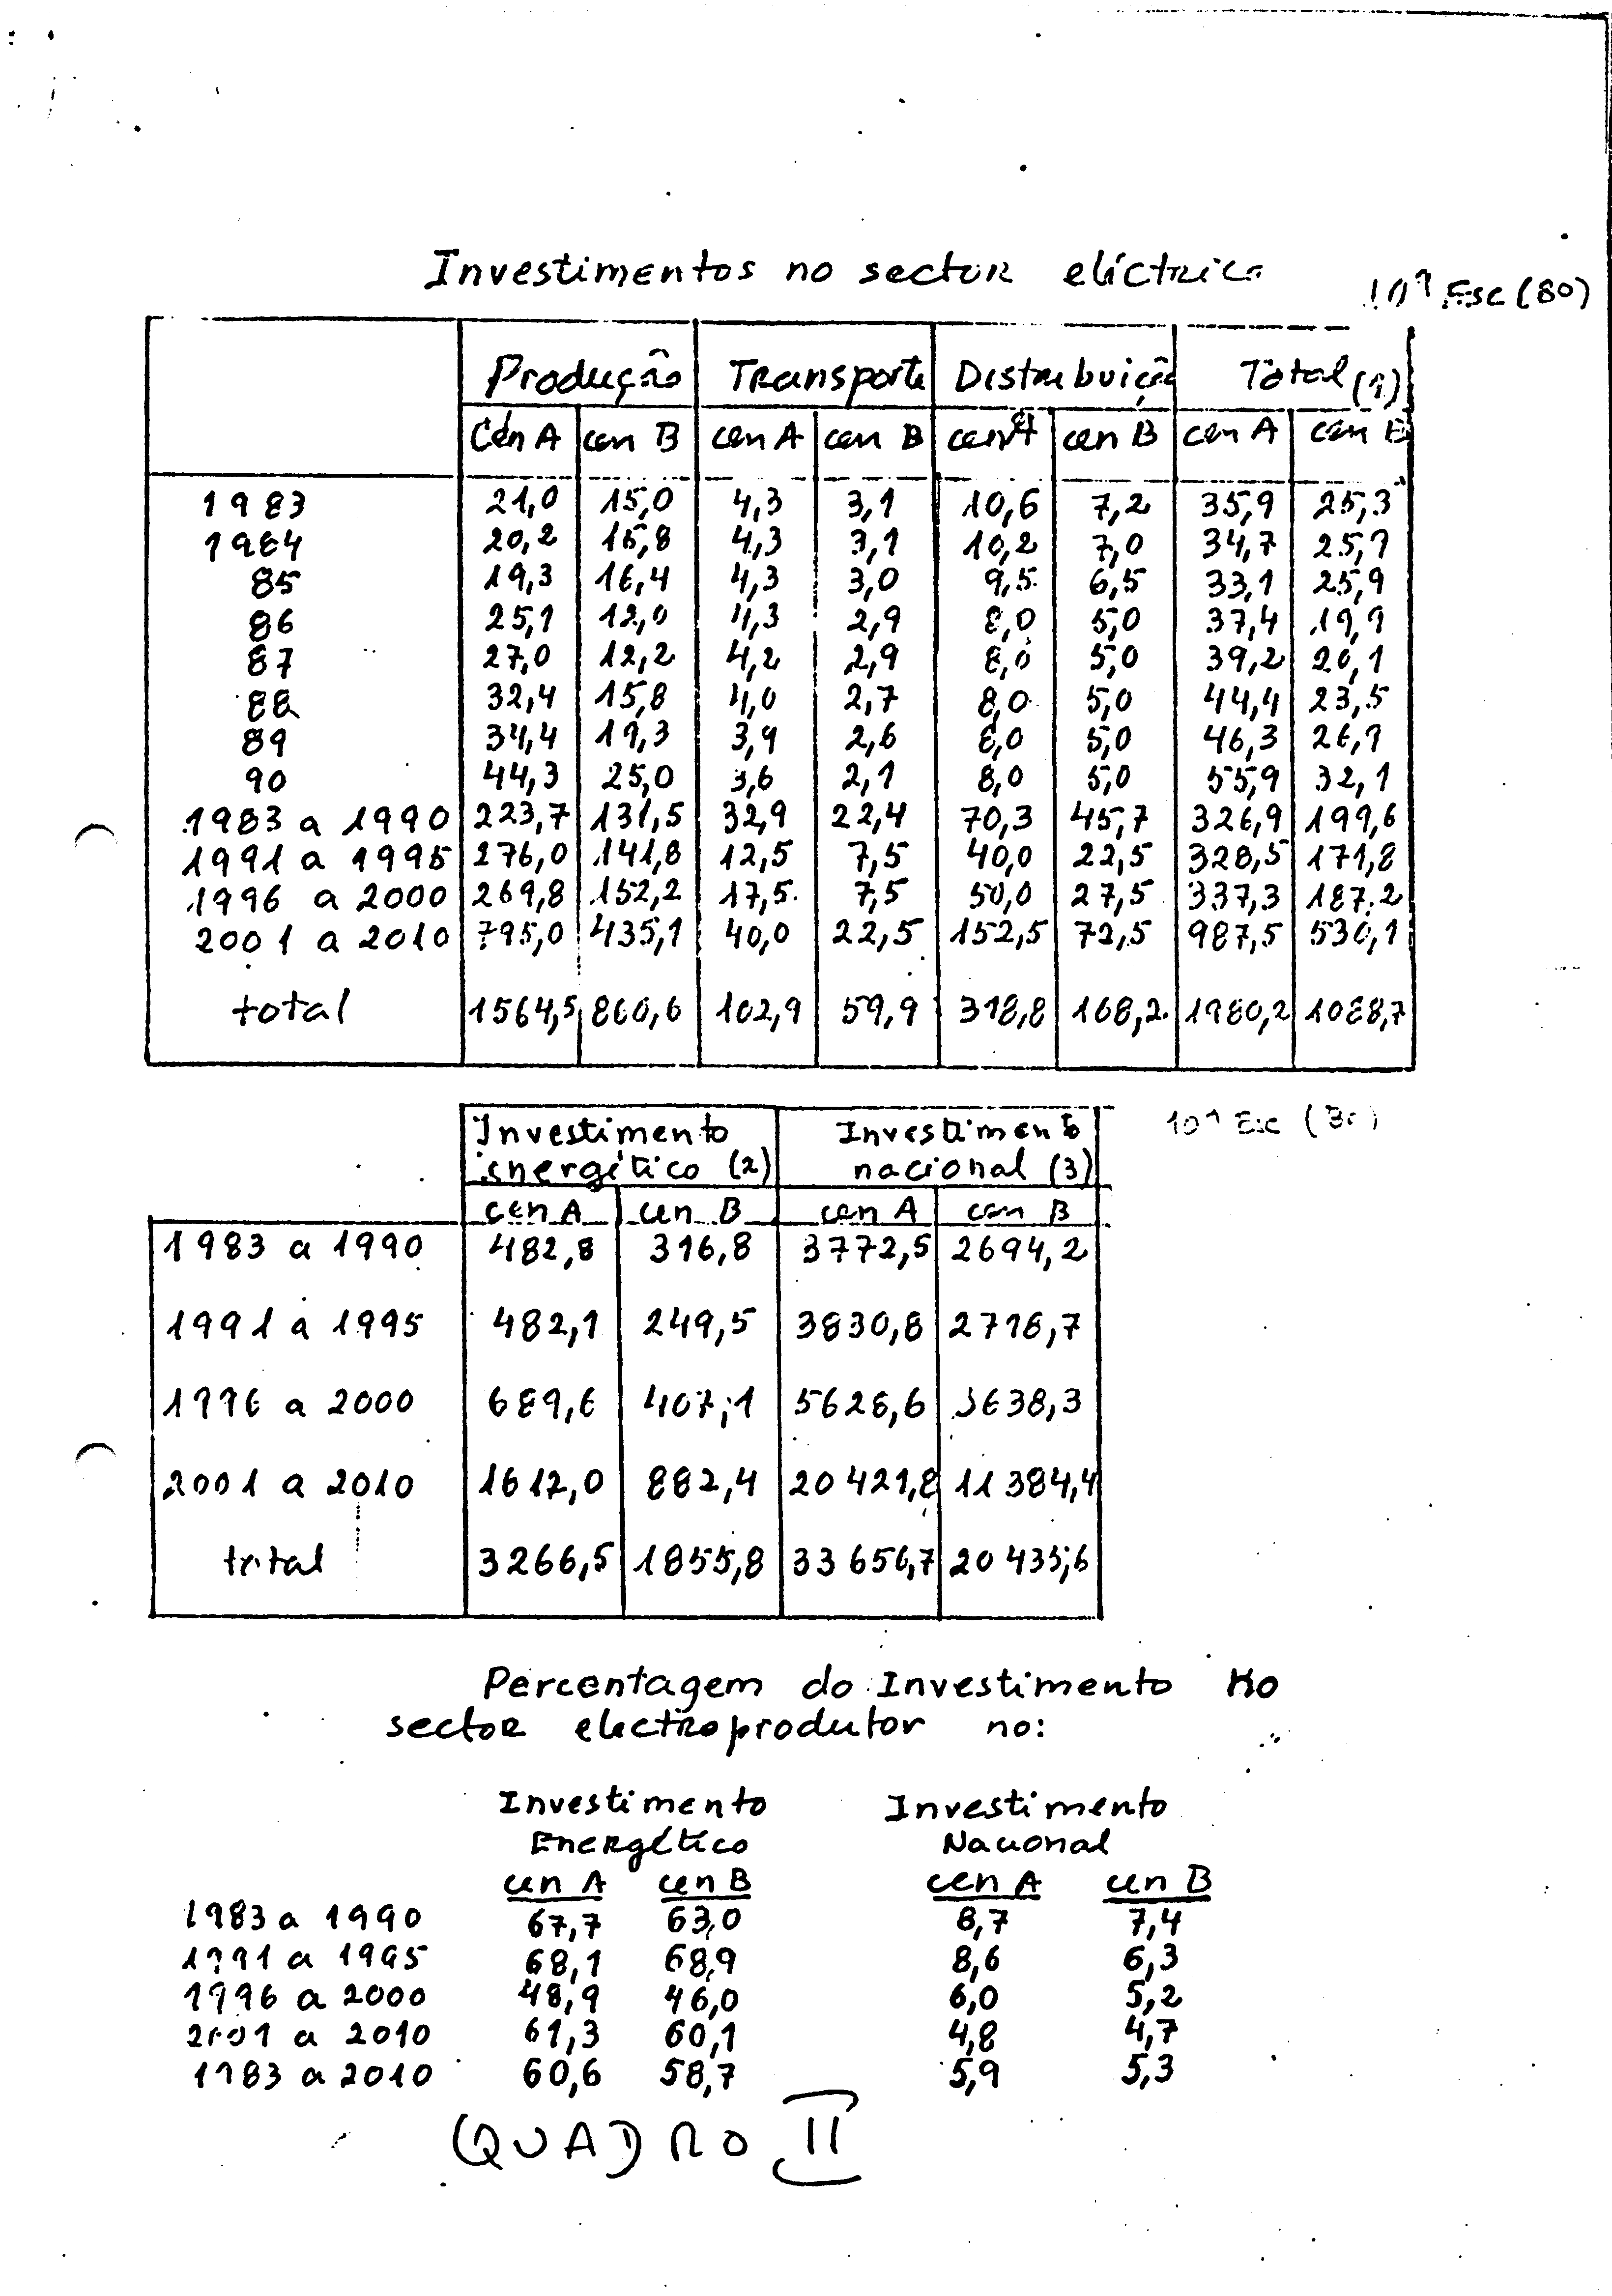 Investimentos no sector eléctrico
10⁹ Esc (80)
Produção Transporte Distribuição Total (1)
Cen A cen B cen A cen B cen A cen B cen A cen B
1983 21,0 15,0 4,3 3,1 10,6 7,2 35,9 25,3
1984 20,2 15,8 4,3 3,1 10,2 7,0 34,7 25,9
85 19,3 16,4 4,3 3,0 9,5 6,5 33,1 25,9
86 25,1 12,0 4,3 2,9 8,0 5,0 37,4 19,9
87 27,0 12,2 4,2 2,9 8,0 5,0 39,2 20,1
88 32,4 15,8 4,0 2,7 8,0 5,0 44,4 23,5
89 34,4 19,3 3,9 2,6 8,0 5,0 46,3 26,9
90 44,3 25,0 3,6 2,1 8,0 5,0 55,9 32,1
1983 a 1990 223,7 131,5 32,9 22,4 70,3 45,7 326,9 199,6
1991 a 1995 276,0 141,8 12,5 7,5 40,0 22,5 328,5 171,8
1996 a 2000 269,8 152,2 17,5 7,5 50,0 27,5 337,3 187,2
2001 a 2010 795,0 435,1 40,0 22,5 152,5 72,5 987,5 530,1
total 1564,5 860,6 102,9 59,9 318,8 168,2 1980,2 1088,7
10⁹ Esc (80)
Investimento Investimento
energético (2) nacional (3)
cen A cen B cen A cen B
1983 a 1990 482,8 316,8 3772,5 2694,2
1991 a 1995 482,1 249,5 3830,8 2716,7
1996 a 2000 689,6 407,1 5628,6 3638,3
2001 a 2010 1612,0 882,4 20 421,8 11 384,4
total 3266,5 1855,8 33 656,7 20 433,6
Percentagem do Investimento no
sector electroprodutor no:
Investimento Investimento
Energético Nacional
cen A cen B cen A cen B
1983 a 1990 67,7 63,0 8,7 7,4
1991 a 1995 68,1 68,9 8,6 6,3
1996 a 2000 48,9 46,0 6,0 5,2
2001 a 2010 61,3 60,1 4,8 4,7
1983 a 2010 60,6 58,7 5,9 5,3
QUADRO II